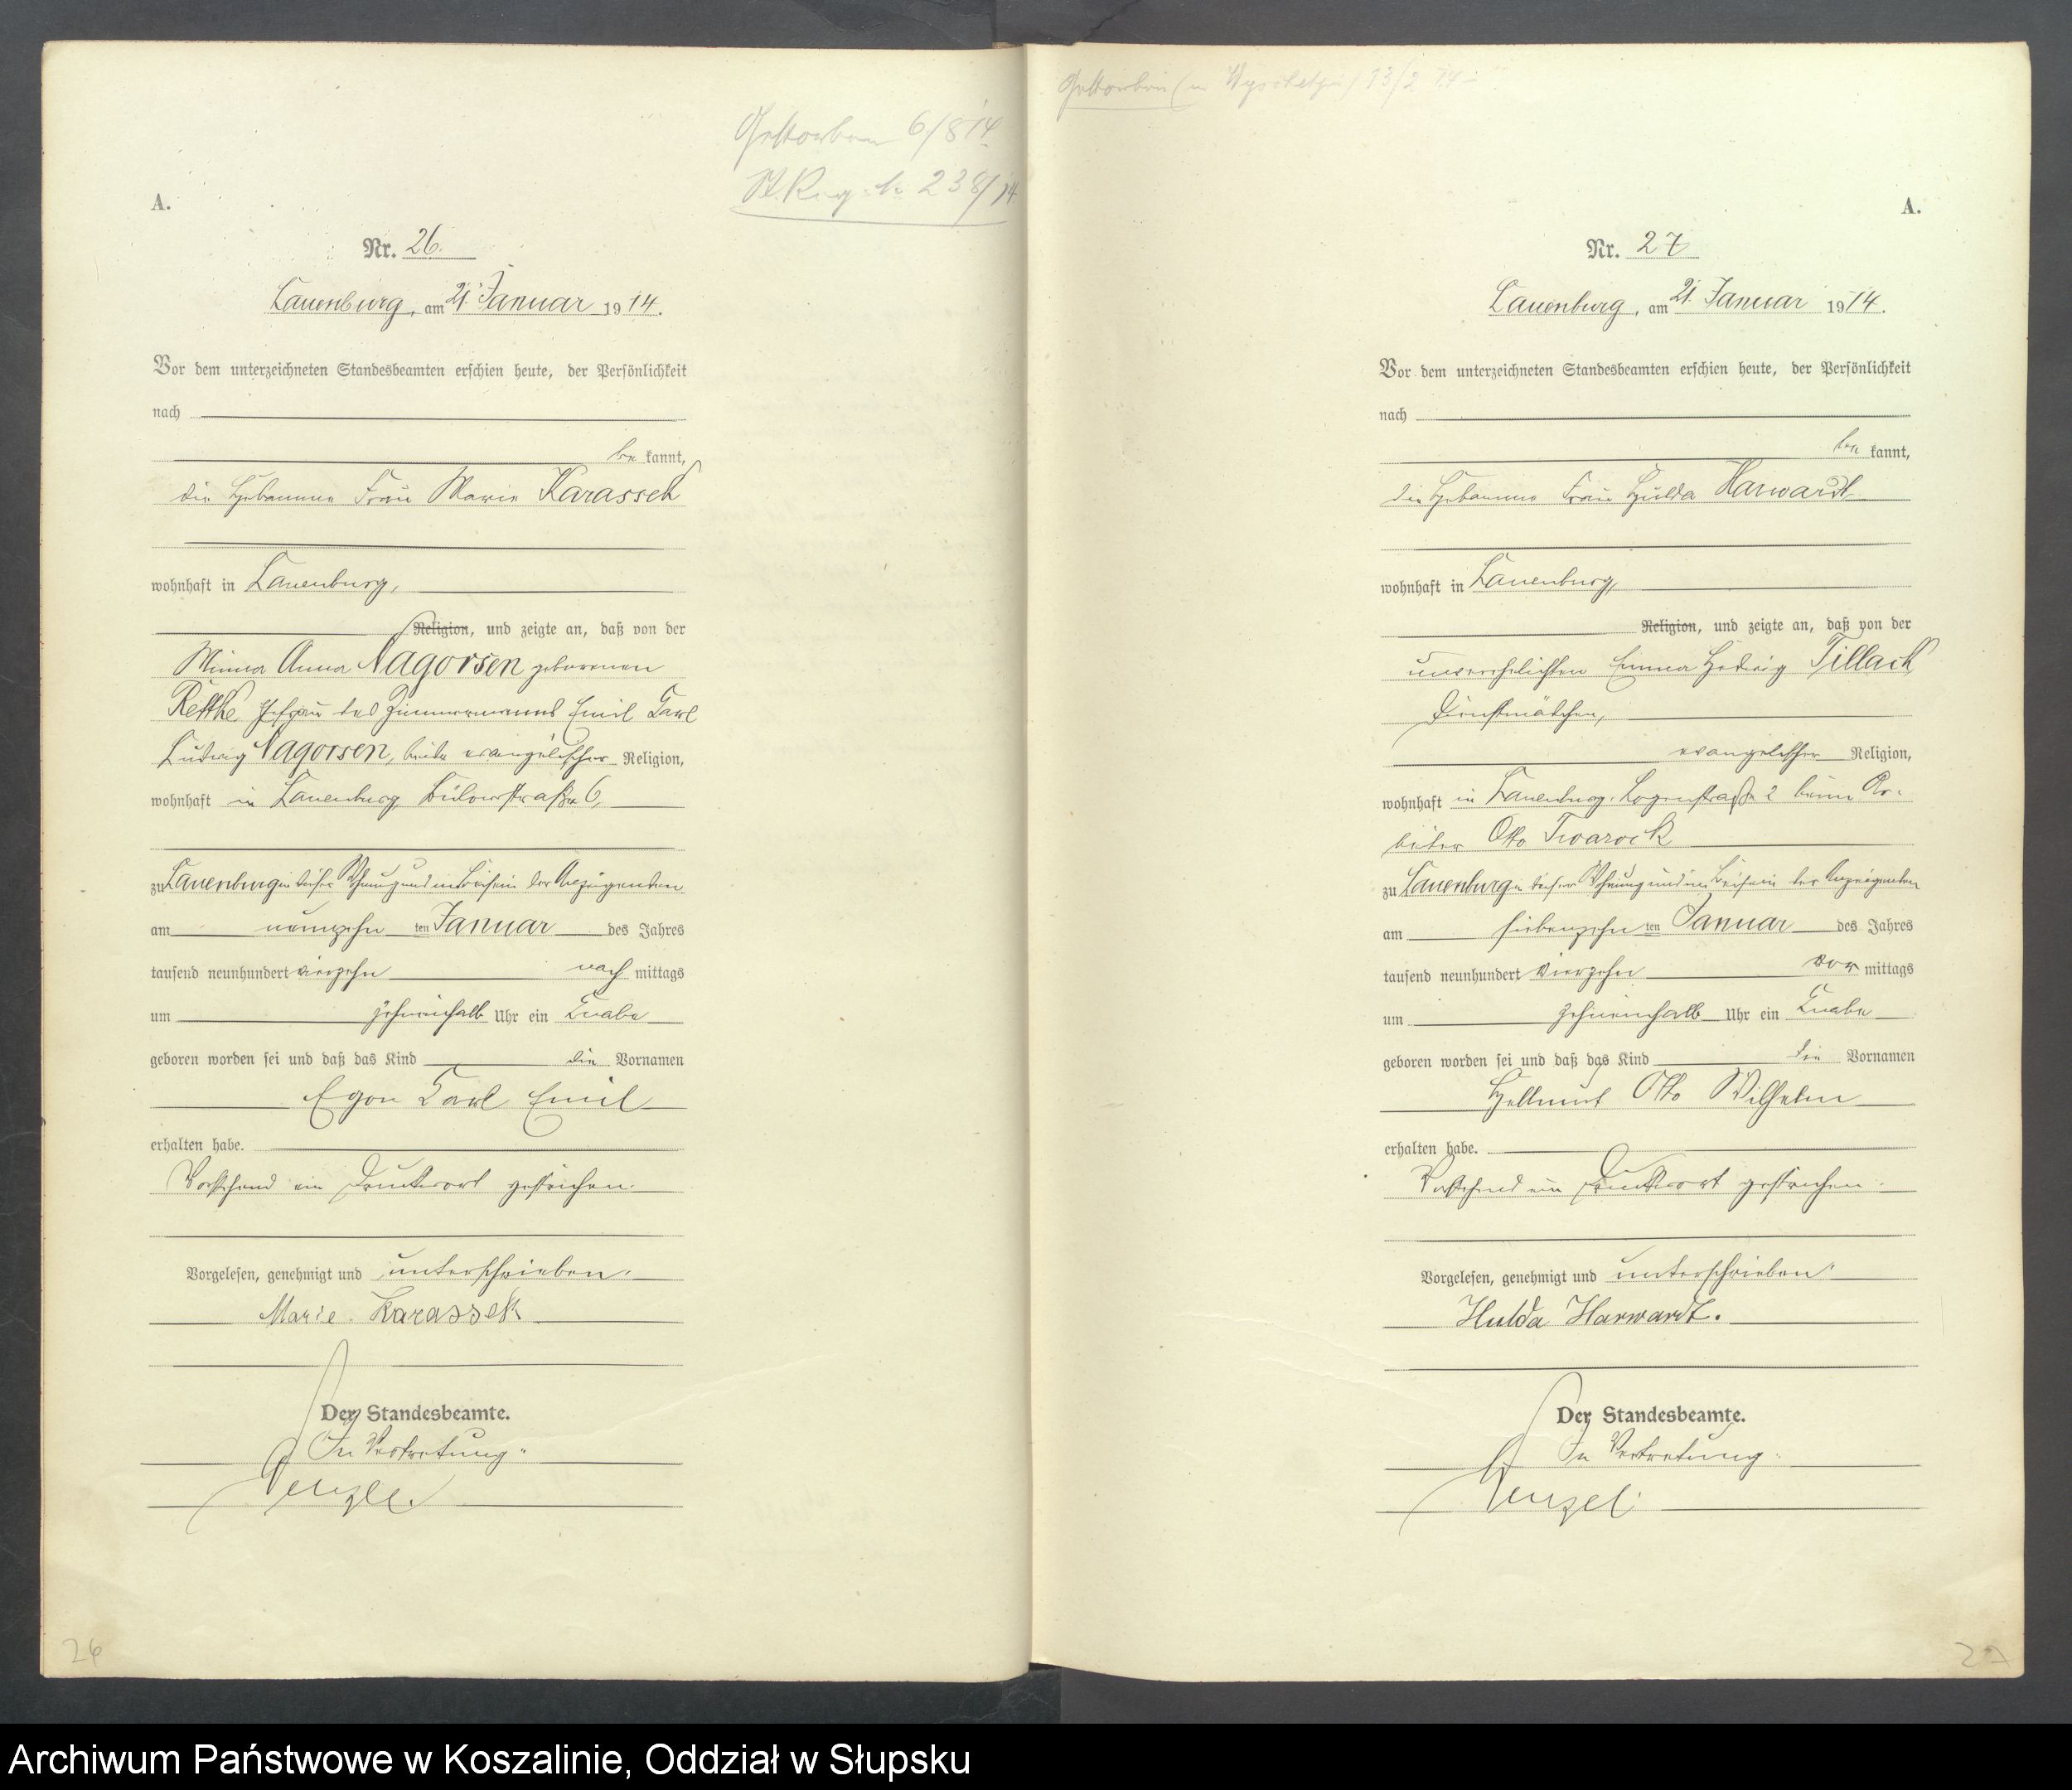 Gestorben 6/8 14
St. Reg. Nr 238/14.
A.
Nr. 26.
Lauenburg, am 21. Januar 1914.
Vor dem unterzeichneten Standesbeamten erschien heute, der Persönlichkeit
nach
be kannt,
die Hebamme Frau Marie Karassek
wohnhaft in Lauenburg,
Religion, und zeigte an, daß von der
Minna Anna Nagorsen geborenen
Ehefrau des Zimmermanns Emil Carl
Ludwig Nagorsen, beide evangelischer Religion,
wohnhaft in Lauenburg, Bülowstraße 6,
zu Lauenburg in dieser Wohnung und im Beisein der Anzeigenden
am neunzehn ten Januar des Jahres
tausend neunhundert vierzehn nach mittags
um zehneinhalb Uhr ein Knabe
geboren worden sei und daß das Kind die Vornamen
Egon Carl Emil
erhalten habe.
Vorstehend ein Druckwort gestrichen.
Vorgelesen, genehmigt und unterschrieben.
Marie Karassek
Der Standesbeamte.
In Vertretung.
26
Gestorben (in 13/2 14
A.
Nr. 27
Lauenburg, am 21. Januar 1914.
Vor dem unterzeichneten Standesbeamten erschien heute, der Persönlichkeit
nach
be kannt,
die Hebamme Frau Hulda Harwardt
wohnhaft in Lauenburg,
Religion, und zeigte an, daß von der
unverehelichten Emma Hedwig Tillack,
Dienstmädchen,
evangelischer Religion,
wohnhaft in Lauenburg, Logenstraße 2 beim Ar-
beiter Otto Twarock
zu Lauenburg in dieser Wohnung und im Beisein der Anzeigenden
am siebenzehn ten Januar des Jahres
tausend neunhundert vierzehn vor mittags
um zehneinhalb Uhr ein Knabe
geboren worden sei und daß das Kind die Vornamen
Hellmut Otto Wilhelm
erhalten habe.
Vorstehend ein Druckwort gestrichen.
Vorgelesen, genehmigt und unterschrieben.
Hulda Harwardt.
Der Standesbeamte.
In Vertretung.
27
Archiwum Państwowe w Koszalinie, Oddział w Słupsku